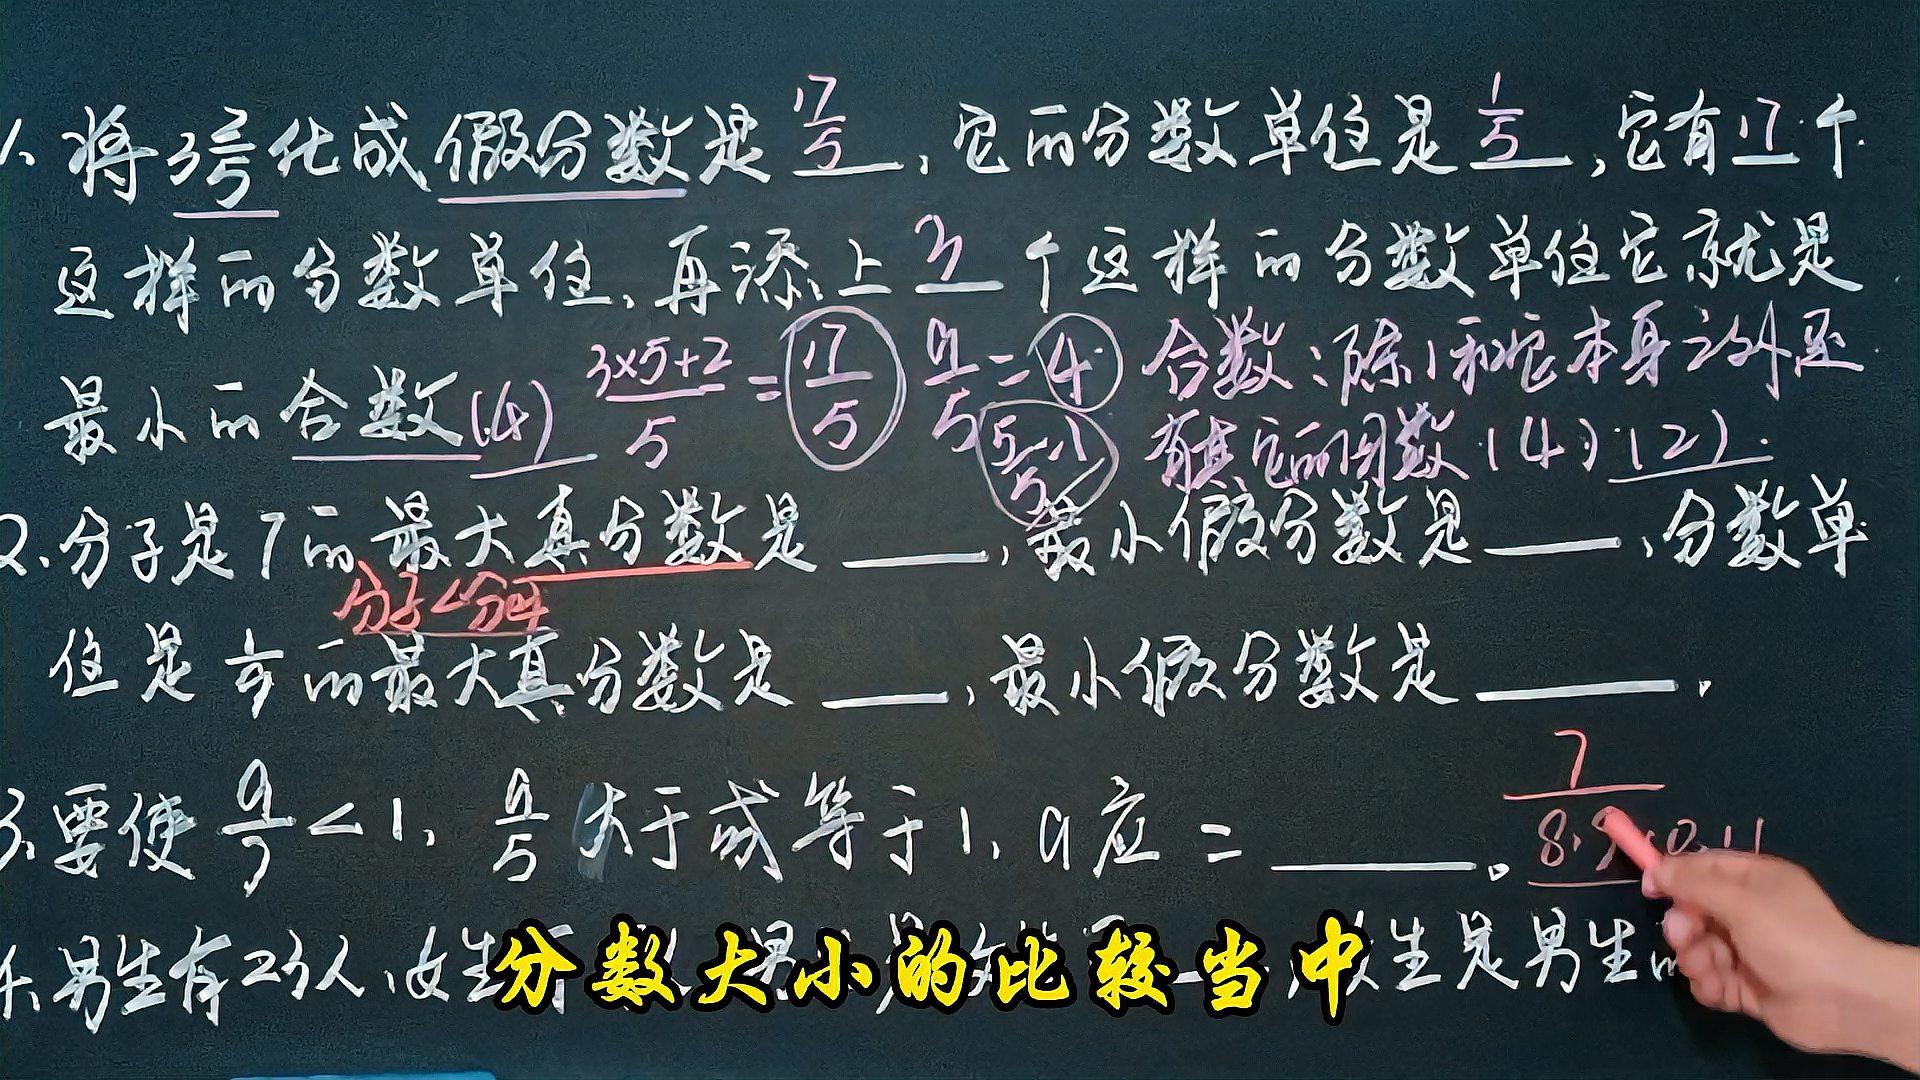 1、将3 2/5 化成假分数是 17/5，它的分数单位是 1/5，它有17个
这样的分数单位，再添上 3 个这样的分数单位它就是
最小的合数(4) (3×5+2)/5 = 17/5 a/5=4 合数：除1和它本身之外还
5/5=1 有其它的因数(4)(2)
2.分子是7的最大真分数是 ____，最小假分数是____，分数单
分子<分母
位是 1/9 的最大真分数是 ____，最小假分数是____.
7
3.要使 a/7 < 1, a/5 大于或等于1, a应 = ____。 8.9
男生有23人,女生
分数大小的比较当中
生是男生的